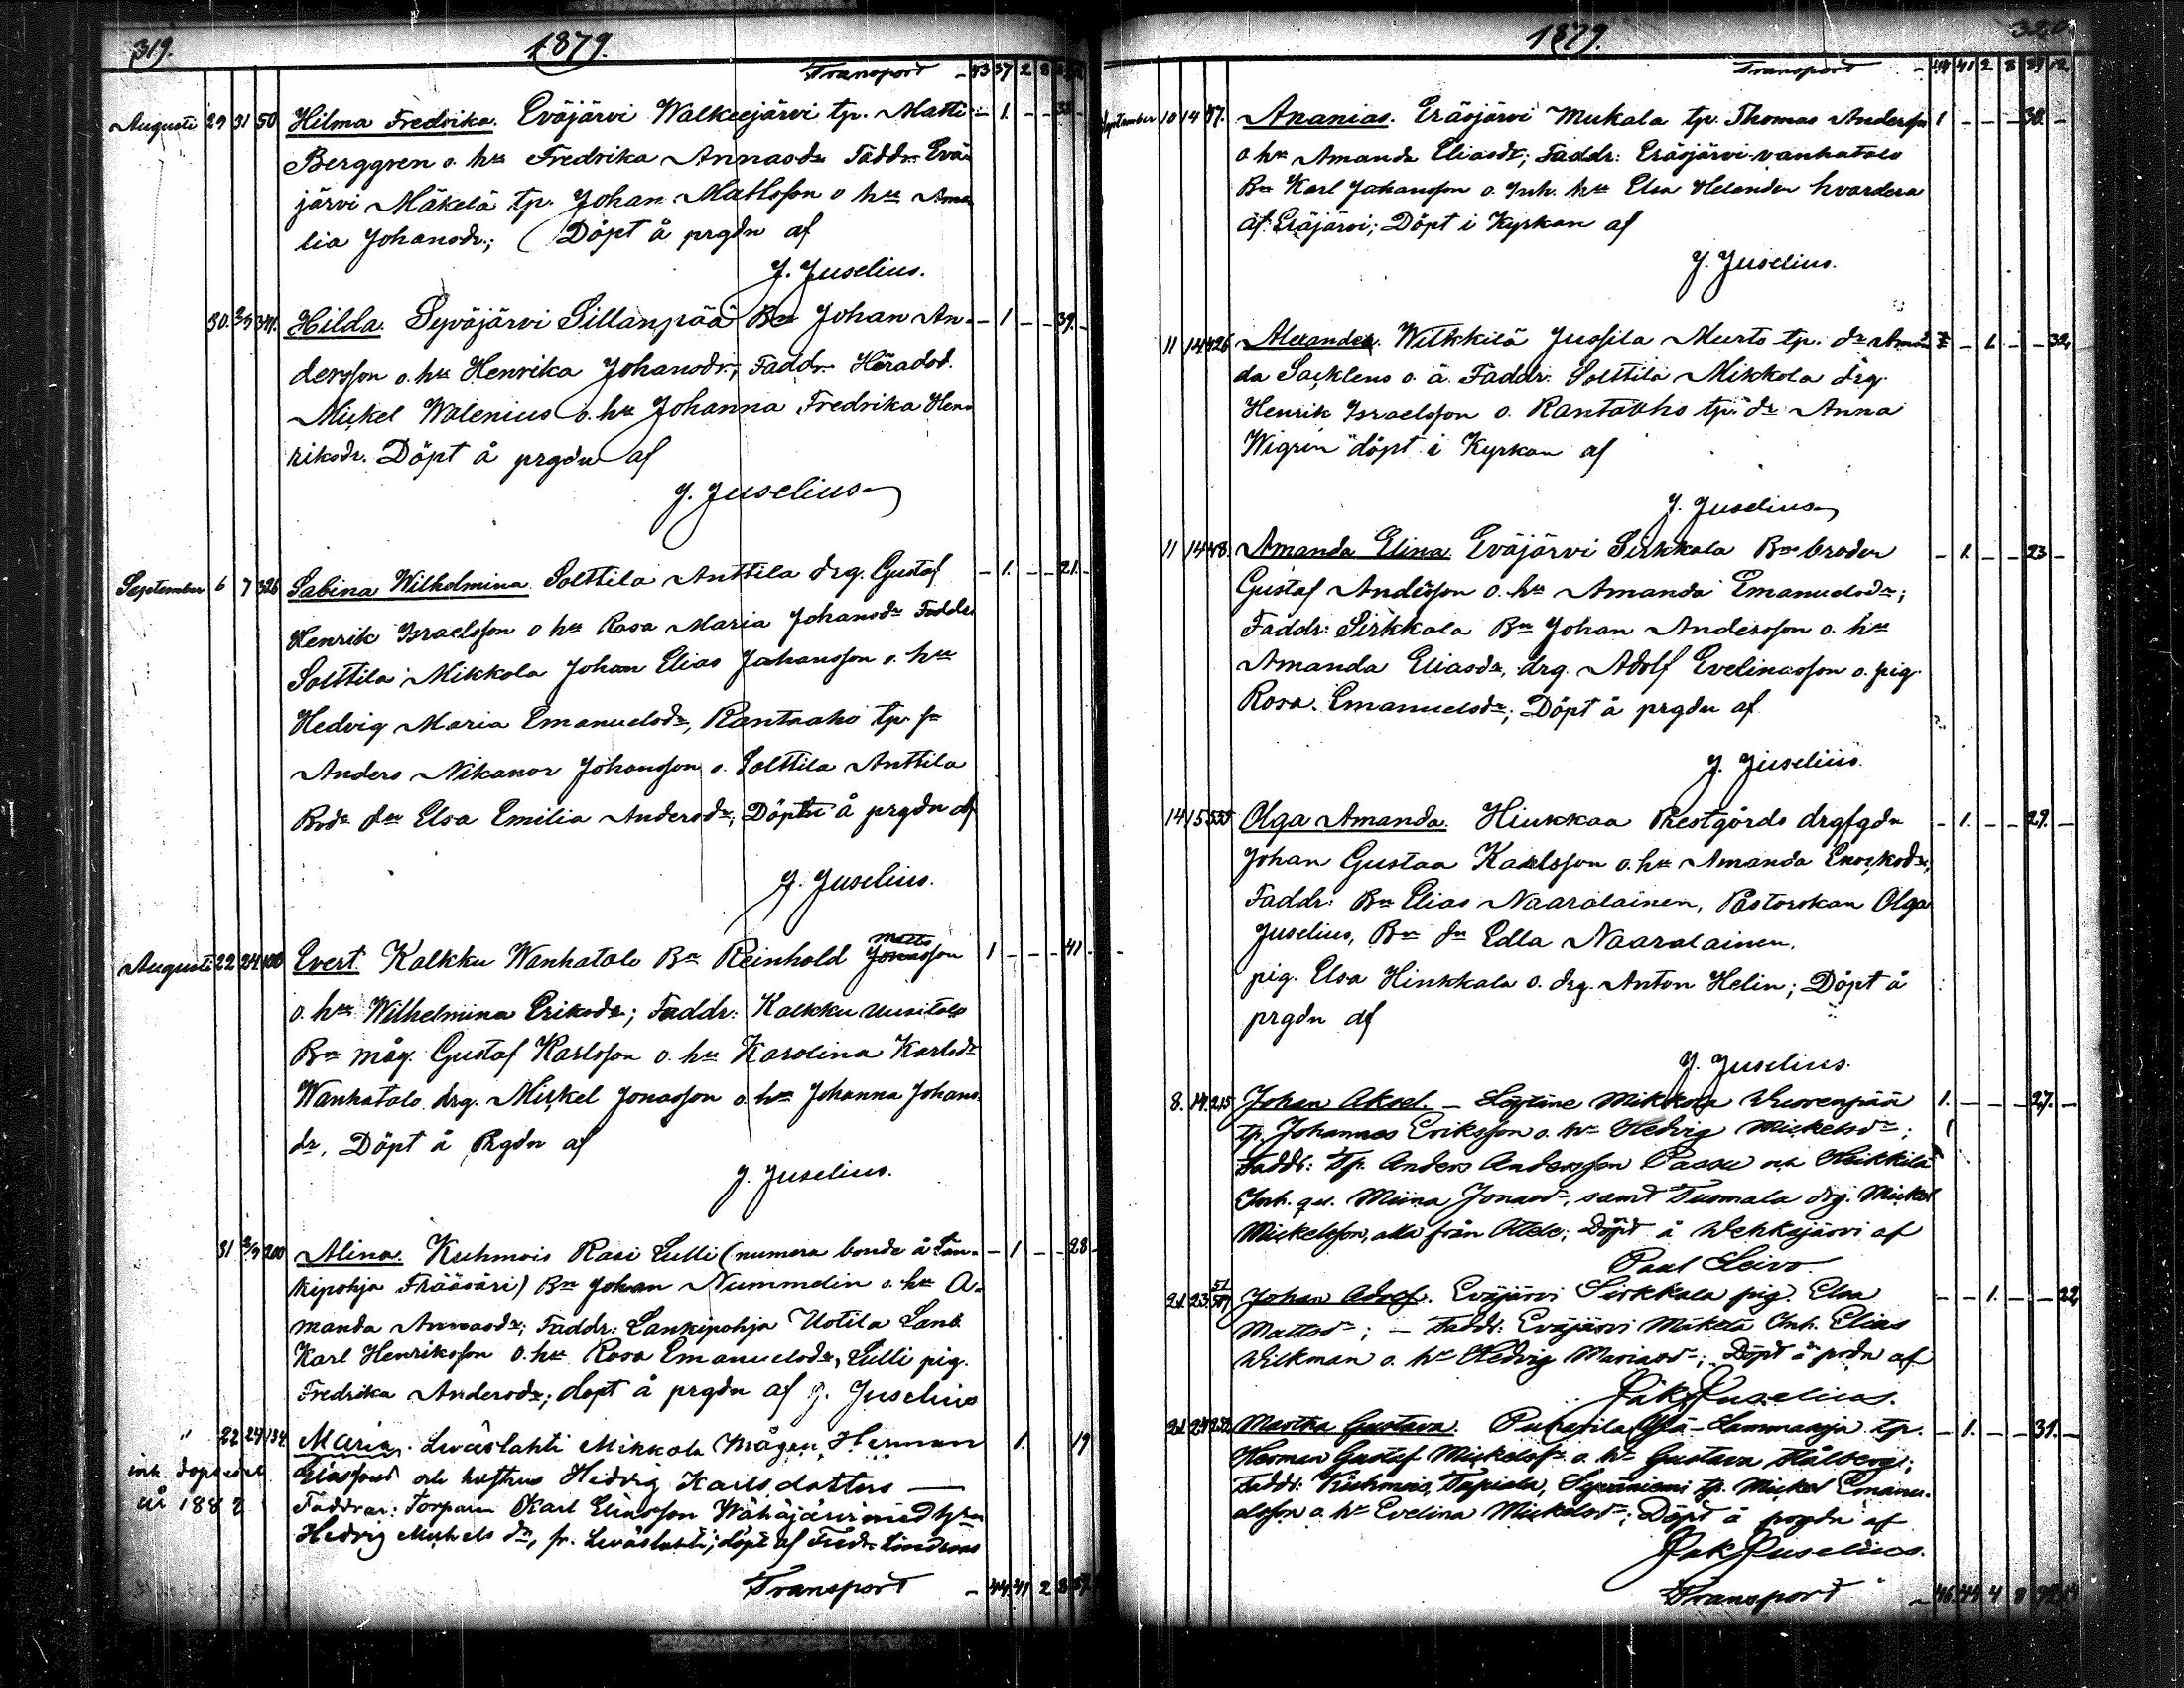 319. 1879.
Transport - 43 37 2 8
Augusti 29 31 50 Hilma Fredrika. Eväjärvi Walkeejärvi tp. Matti - 1. - - 33 -
Berggren o. hu Fredrika Annasdr Faddr Evä-
järvi Mäkelä tp. Johan Mattsson o hu Ama
lia Johansdr; Döpt å prgdn af
J. Juselius.
30. 2/9 341. Hilda. Syväjärvi Sillanpää Bn Johan An- - 1 - - 39. -
dersson o. hu Henrika Johansdr; Faddr Häradsd.
Mickel Walenius o. hu Johanna Fredrika Hen-
riksdr. Döpt å prgdn af
J. Juselius
September 6 7 326 Sabina Wilhelmina. Solttila Anttila drg. Gustaf - 1. - - 21. -
Henrik Israelsson o hu Rosa Maria Johansdr Faddr
Solttila Mikkola Johan Elias Johansson o. hu
Hedvig Maria Emanuelsdr, Rantaaho tp. sn
Anders Nikanor Johansson o. Solttila Anttila
Bds dr Elsa Emilia Andersdr; Döpt å prgdn af
J. Juselius.
Augusti 22 24 100 Evert. Kalkku Wanhatalo Bn Reinhold Jonasson 1 - - - 41 -
Matts
o. hu Wilhelmina Eriksdr; Faddr: Kalkku Uusitalo
Bn måg. Gustaf Karlsson o. hu Karolina Karlsdr
Wanhatalo drg. Mickel Jonasson o. hu Johanna Johans-
dr, Döpt å Prgdn af
J. Juselius.
31 2/9 200 Alina. Kuhmois Rasi Lulli (numera bonde å Län- - 1 - - 28 -
kipohja Fräsäri) Bn Johan Nummelin o. hu A-
manda Annasdr; Faddr: Lankipohja Uotila Lanb.
Karl Henriksson o. hu Rosa Emanuelsdr, Lulli pig.
Fredrika Andersdr; döpt å prgdn af J. Juselius
" 22 24 134 Maria. Leväslahti Mikkola Mågen Herman 1. 19
inh. dopsedel Eliasson och hustrus Hedvig Karlsdotters
år 1882 Faddrar: Torparen Karl Eliasson Wähäjärvi med hstru
Hedvig Michels dr, fr. Leväslahti; döpt af Fredr. Lindroos
Transport - 44 41 2 8 87
1879. 320
Transport - 44 41 2 8 87 12
September 10 14 87. Ananias. Eräsjärvi Mukala tp. Thomas Andersson 1 - - - 30. -
o hu Amanda Eliasdr; Faddr: Eräsjärvi vanhatalo
Bn Karl Johansson o. Inh. hu Elsa Helander hvardera
af Eräjärvi; Döpt i Kyrkan af
J. Juselius.
11 14 426 Alexander. Wilkkilä Jussila Murto tp. dr Aman- - 1. - - 32,
da Sacklens o. ä. Faddr: Solttila Mikkola drg.
Henrik Israelsson o. Rantaaho tp. dr Anna
Wigren döpt i Kyrkan af
J. Juselius
11 14 48. Amanda Elina. Eväjärvi Sirkkala Bns broder - 1. - - 23 -
Gustaf Andersson o. hu Amanda Emanuelsdr;
Faddr: Sirkkala Bn Johan Andersson o. hu
Amanda Eliasdr, drg. Adolf Evelinasson o. pig.
Rosa Emanuelsdr; Döpt å prgdn af
J. Juselius.
14 15 535 Olga Amanda. Hiukkaa Prestgårds drgfgdn - 1. - - 29. -
Johan Gustaa Karlsson o. hu Amanda Enocksdr;
Faddr: Bn Elias Naaralainen, Pastorskan Olga
Juselius, Bn dr Edla Naaralainen.
pig. Elsa Hinkkala o. drg. Anton Helin; Döpt å
prgdn af
J. Juselius.
8. 14 215 Johan Aksel. - Löytäne Mikkola Wuorenpää 1. - - - 27. -
tp. Johannes Eriksson o. hu Hedvig Mickelsdr;
Faddr: Tp. Anders Andersson Paasu o Heikkilä
Inh. qv. Miina Jonasdr, samt Tuomala drg. Mickel
Mickelsson, alla från Attela; Döpt å Wehkajärvi af
Paul Leivo.
21 23 51/507 Johan Adolf. Eväjärvi Sirkkala pig. Elsa - - 1. - - 22,
Mattsdr; - Faddr: Eväjärvi Mäkelä Inh. Elias
Wilkman o. hu Hedvig Mariasdr; Döpt å prdn af
Jak. Juselius.
21 24 252 Martha Gustava. Puharila Ylä-Lammasoja tp. - 1. - - 31. -
Herman Gustaf Mickelsson o. hu Gustava Stålberg;
Faddr: Kuhmois, Tapiala, Syväniemi tp. Mickel Emanu-
elsson o. hu Evelina Mickelsdr; Döpt å prgdn af
Jak Juselius.
Transport - 46 44 4 8 92 14